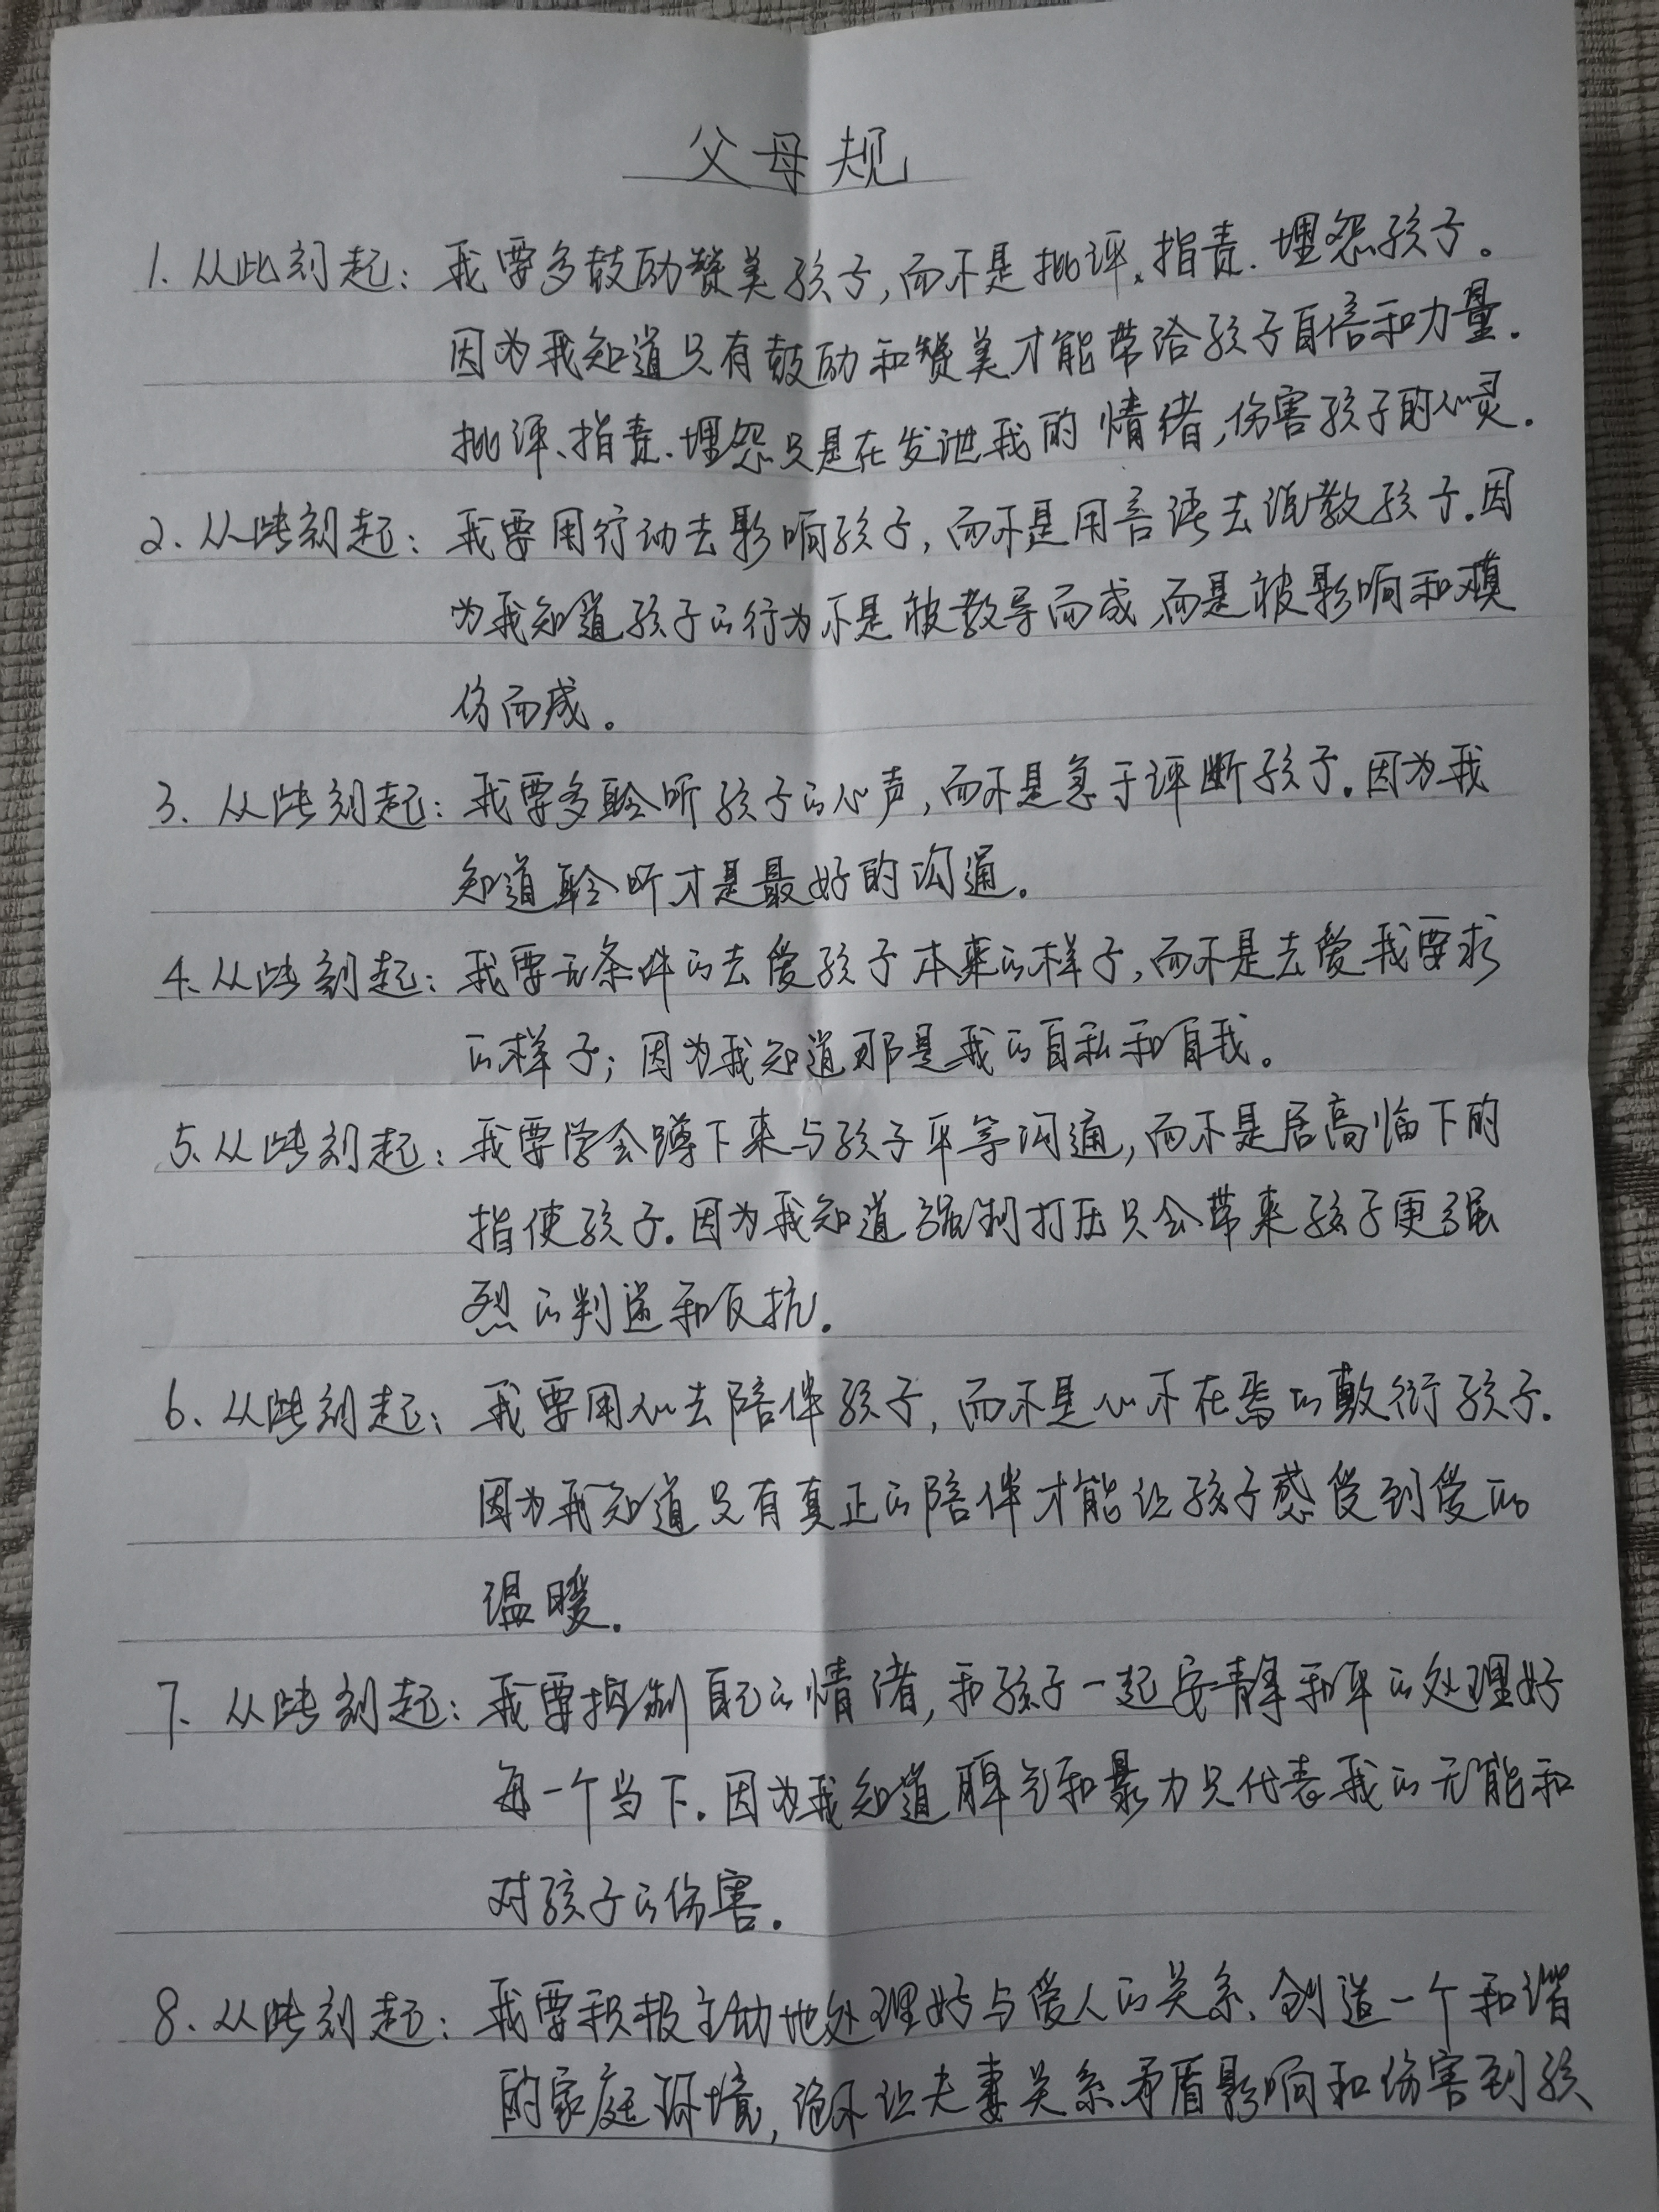 父母规
1. 从此刻起：我要多鼓励赞美孩子，而不是批评、指责、埋怨孩子。
因为我知道只有鼓励和赞美才能带给孩子自信和力量.
批评、指责、埋怨只是在发泄我的情绪，伤害孩子的心灵.
2. 从此刻起：我要用行动去影响孩子，而不是用言语去说教孩子.因
为我知道孩子的行为不是被教导而成，而是被影响和模
仿而成。
3、从此刻起：我要多聆听孩子的心声，而不是急于评断孩子.因为我
知道聆听才是最好的沟通.
4、从此刻起：我要无条件的去爱孩子本来的样子，而不是去爱我要求
的样子；因为我知道那是我的自私和自我。
5、从此刻起：我要学会蹲下来与孩子平等沟通，而不是居高临下的
指使孩子.因为我知道强制打压只会带来孩子更强
烈的判逆和反抗.
6、从此刻起：我要用心去陪伴孩子，而不是心不在焉的敷衍孩子.
因为我知道只有真正的陪伴才能让孩子感受到爱的
温暖.
7、从此刻起：我要控制自己的情绪，和孩子一起安静和平的处理好
每一个当下.因为我知道脾气和暴力只代表我的无能和
对孩子的伤害.
8、从此刻起：我要积极主动地处理好与爱人的关系、创造一个和谐
的家庭环境，绝不让夫妻关系矛盾影响和伤害到孩